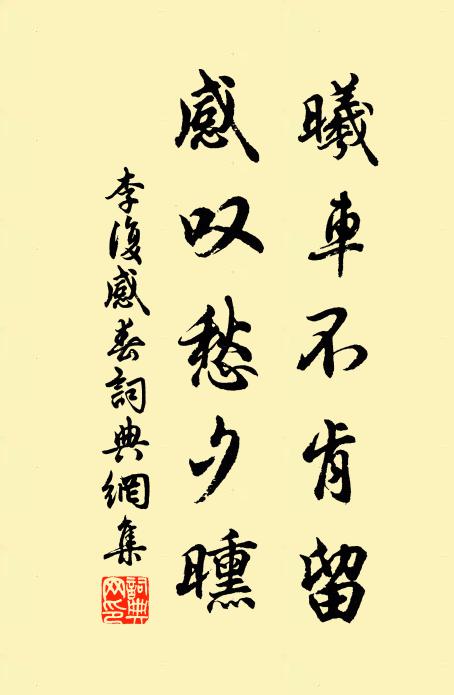 曦車不肯留
感叹愁夕曛
李復感春詞典網集
詞典网印